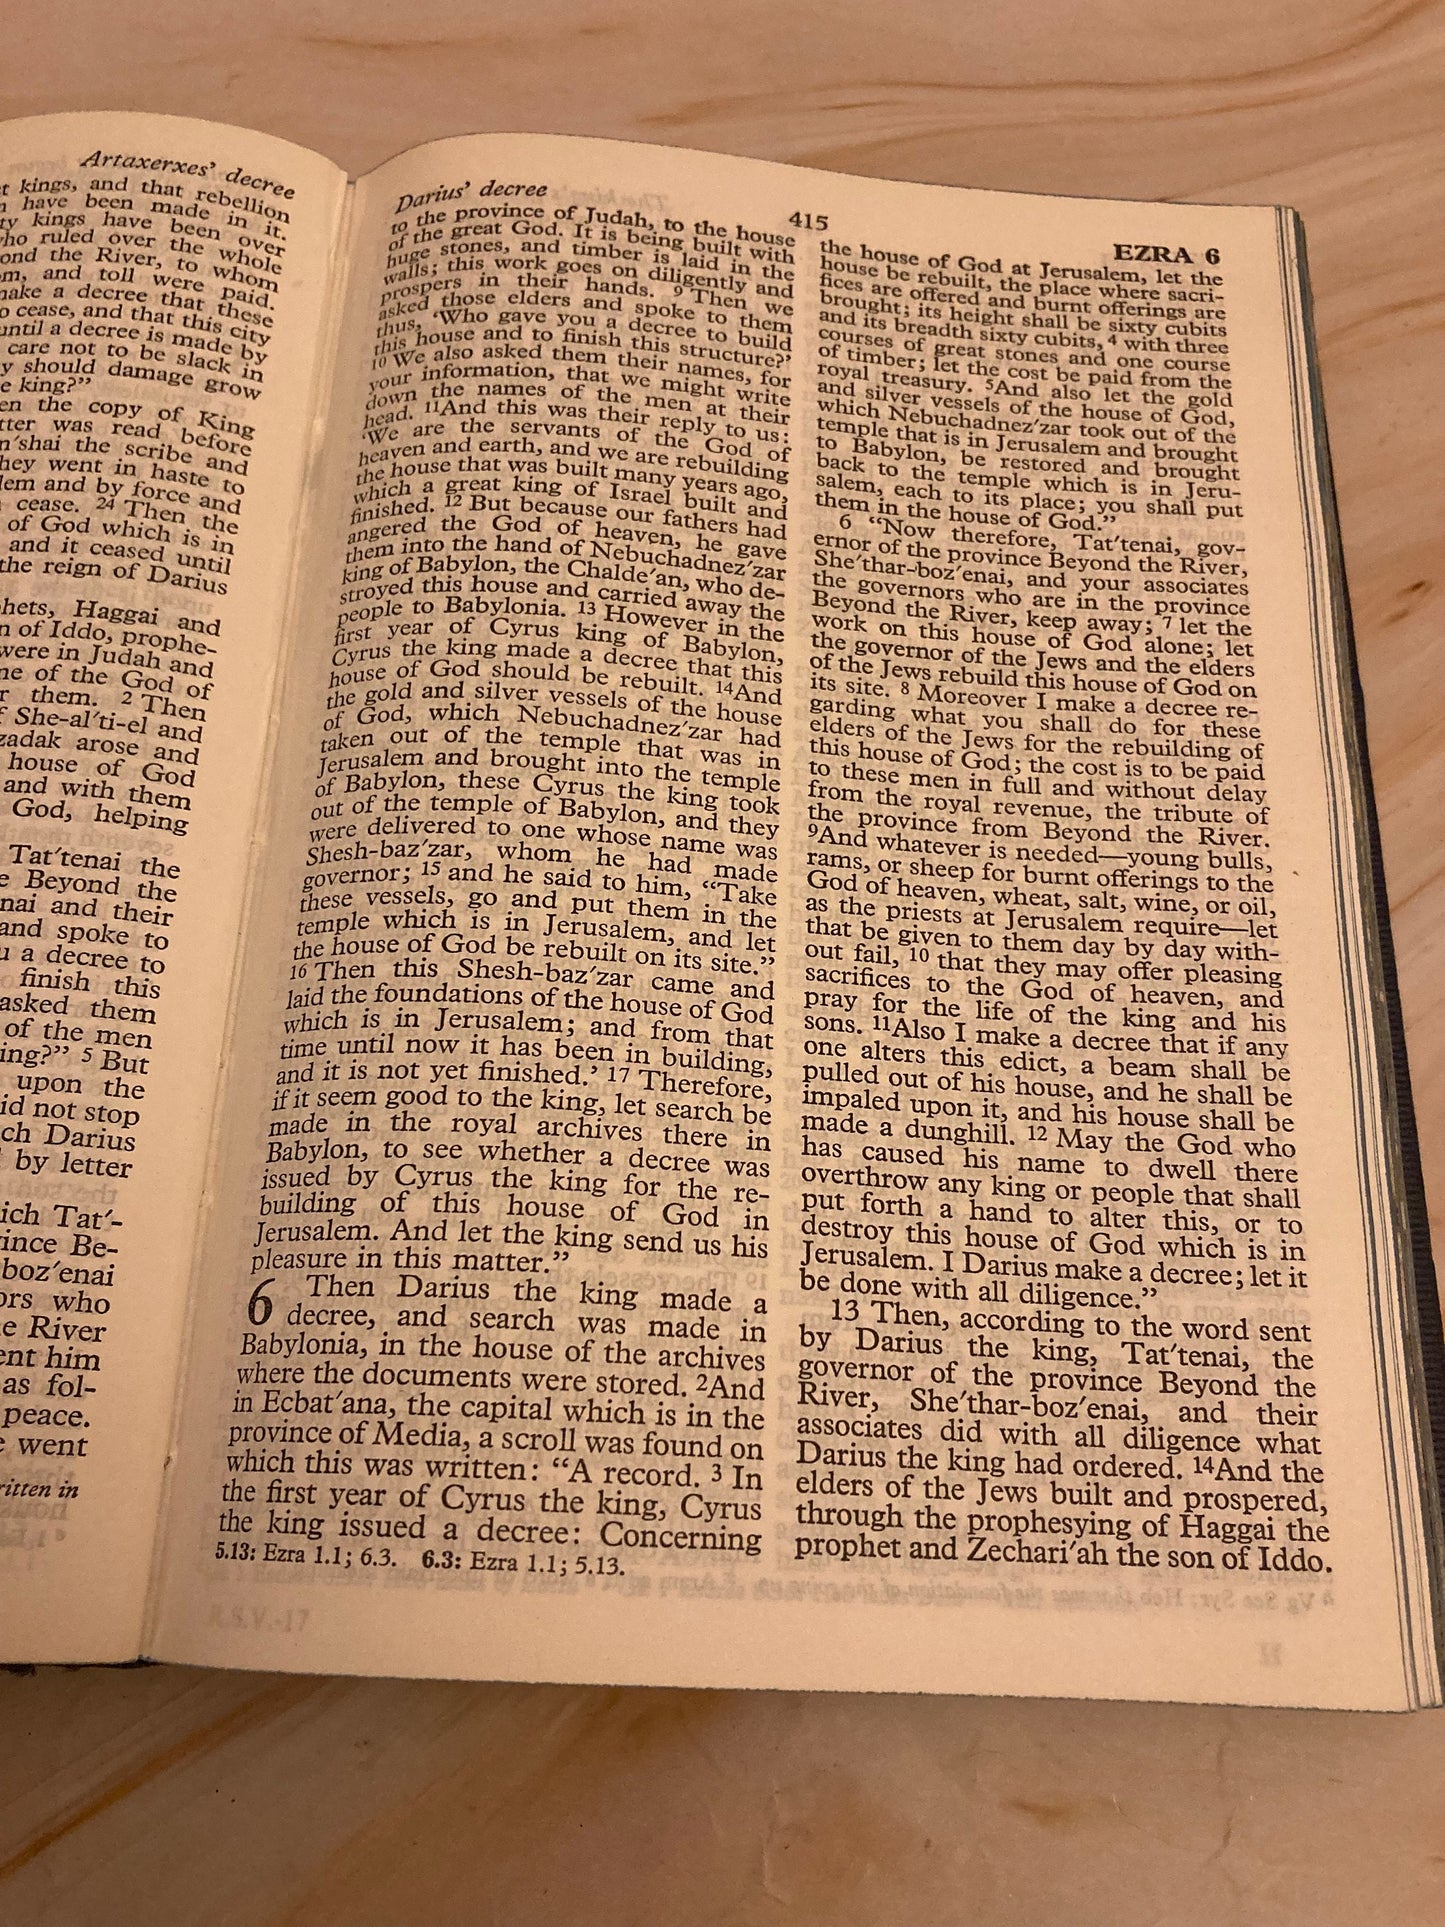 Artaxerxes' decree
kings, and that rebellion
have been made in it.
kings have been over
who ruled over the whole
the River, to whom
and toll were paid.
make a decree that these
cease, and that this city
until a decree is made by
care not to be slack in
should damage grow
king?"
the copy of King
was read before
the scribe and
they went in haste to
and by force and
cease. 24 Then the
of God which is in
and it ceased until
the reign of Darius
Haggai and
of Iddo, prophe-
were in Judah and
of the God of
them. 2 Then
She-al'ti-el and
arose and
house of God
and with them
God, helping
Tat'tenai the
Beyond the
and their
and spoke to
a decree to
finish this
asked them
of the men
5 But
upon the
not stop
Darius
by letter
Tat'-
Be-
who
River
him
as fol-
peace.
went
in
Darius' decree
415
EZRA 6
to the province of Judah, to the house
of the great God. It is being built with
huge stones, and timber is laid in the
walls; this work goes on diligently and
prospers in their hands. 9 Then we
asked those elders and spoke to them
thus, 'Who gave you a decree to build
this house and to finish this structure?'
10 We also asked them their names, for
your information, that we might write
down the names of the men at their
head. 11 And this was their reply to us:
'We are the servants of the God of
heaven and earth, and we are rebuilding
the house that was built many years ago,
which a great king of Israel built and
finished. 12 But because our fathers had
angered the God of heaven, he gave
them into the hand of Nebuchadnez'zar
king of Babylon, the Chalde'an, who de-
stroyed this house and carried away the
people to Babylonia. 13 However in the
first year of Cyrus king of Babylon,
Cyrus the king made a decree that this
house of God should be rebuilt. 14 And
the gold and silver vessels of the house
of God, which Nebuchadnez'zar had
taken out of the temple that was in
Jerusalem and brought into the temple
of Babylon, these Cyrus the king took
out of the temple of Babylon, and they
were delivered to one whose name was
Shesh-baz'zar, whom he had made
governor; 15 and he said to him, "Take
these vessels, go and put them in the
temple which is in Jerusalem, and let
the house of God be rebuilt on its site."
16 Then this Shesh-baz'zar came and
laid the foundations of the house of God
which is in Jerusalem; and from that
time until now it has been in building,
and it is not yet finished.' 17 Therefore,
if it seem good to the king, let search be
made in the royal archives there in
Babylon, to see whether a decree was
issued by Cyrus the king for the re-
building of this house of God in
Jerusalem. And let the king send us his
pleasure in this matter."
6 Then Darius the king made a
decree, and search was made in
Babylonia, in the house of the archives
where the documents were stored. 2 And
in Ecbat'ana, the capital which is in the
province of Media, a scroll was found on
which this was written: "A record. 3 In
the first year of Cyrus the king, Cyrus
the king issued a decree: Concerning
5.13: Ezra 1.1; 6.3. 6.3: Ezra 1.1; 5.13.
R.S.V.-17
the house of God at Jerusalem, let the
house be rebuilt, the place where sacri-
fices are offered and burnt offerings are
brought; its height shall be sixty cubits
and its breadth sixty cubits, 4 with three
courses of great stones and one course
of timber; let the cost be paid from the
royal treasury. 5 And also let the gold
and silver vessels of the house of God,
which Nebuchadnez'zar took out of the
temple that is in Jerusalem and brought
to Babylon, be restored and brought
back to the temple which is in Jeru-
salem, each to its place; you shall put
them in the house of God."
6 "Now therefore, Tat'tenai, gov-
ernor of the province Beyond the River,
She'thar-boz'enai, and your associates
the governors who are in the province
Beyond the River, keep away; 7 let the
work on this house of God alone; let
the governor of the Jews and the elders
of the Jews rebuild this house of God on
its site. 8 Moreover I make a decree re-
garding what you shall do for these
elders of the Jews for the rebuilding of
this house of God; the cost is to be paid
to these men in full and without delay
from the royal revenue, the tribute of
the province from Beyond the River.
9 And whatever is needed—young bulls,
rams, or sheep for burnt offerings to the
God of heaven, wheat, salt, wine, or oil,
as the priests at Jerusalem require—let
that be given to them day by day with-
out fail, 10 that they may offer pleasing
sacrifices to the God of heaven, and
pray for the life of the king and his
sons. 11 Also I make a decree that if any
one alters this edict, a beam shall be
pulled out of his house, and he shall be
impaled upon it, and his house shall be
made a dunghill. 12 May the God who
has caused his name to dwell there
overthrow any king or people that shall
put forth a hand to alter this, or to
destroy this house of God which is in
Jerusalem. I Darius make a decree; let it
be done with all diligence."
13 Then, according to the word sent
by Darius the king, Tat'tenai, the
governor of the province Beyond the
River, She'thar-boz'enai, and their
associates did with all diligence what
Darius the king had ordered. 14 And the
elders of the Jews built and prospered,
through the prophesying of Haggai the
prophet and Zechari'ah the son of Iddo.